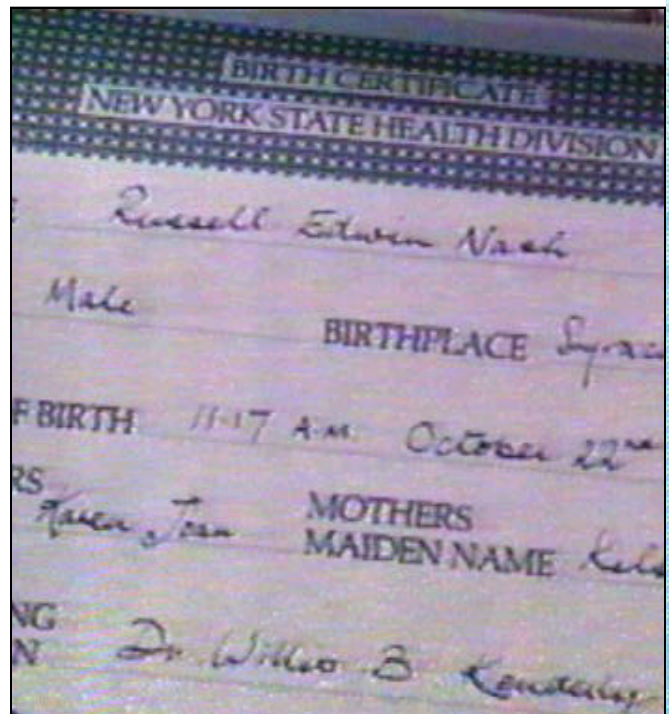 BIRTH CERTIFICATE
NEW YORK STATE HEALTH DIVISION
Russell Edwin Nash
Male BIRTHPLACE Syrac
F BIRTH 11-17 A.M. October 22nd
RS Karen Joan MOTHERS
MAIDEN NAME Kels
NG
N Dr. B